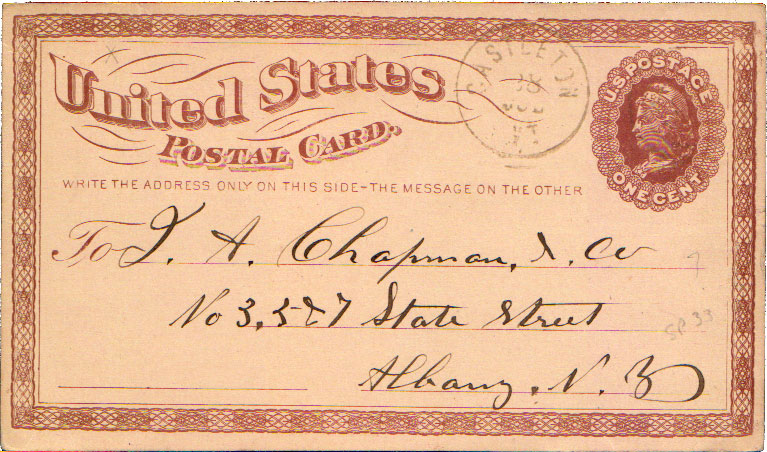 United States
POSTAL CARD.
CASTLETON
JUL
VT
U.S. POSTAGE
ONE CENT
WRITE THE ADDRESS ONLY ON THIS SIDE-THE MESSAGE ON THE OTHER
To I. A. Chapman, & Co
No 3, 5 & 7 State Street
Albany, N. Y
SP 33